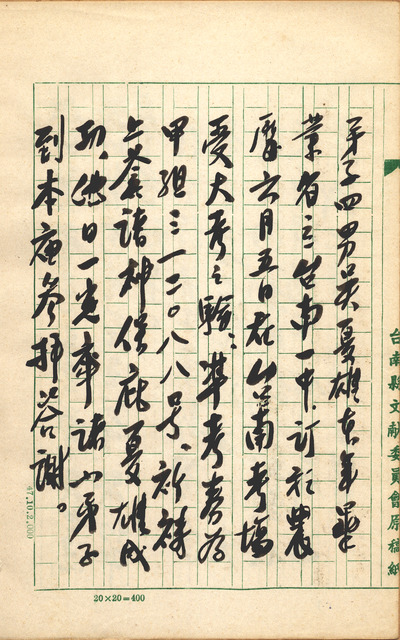 弟子四男吳夏雄去年畢
業省立台南一中訂於農
曆六月五日在台南考塲
受大考之驗準考者為
甲組三一二〇八八号祈禱
上蒼諸神保庇夏雄成
功他日一定率諸小弟子
到本廟參拜答謝。
台南縣文献委員會原稿紙
47.10.2,000
20×20=400